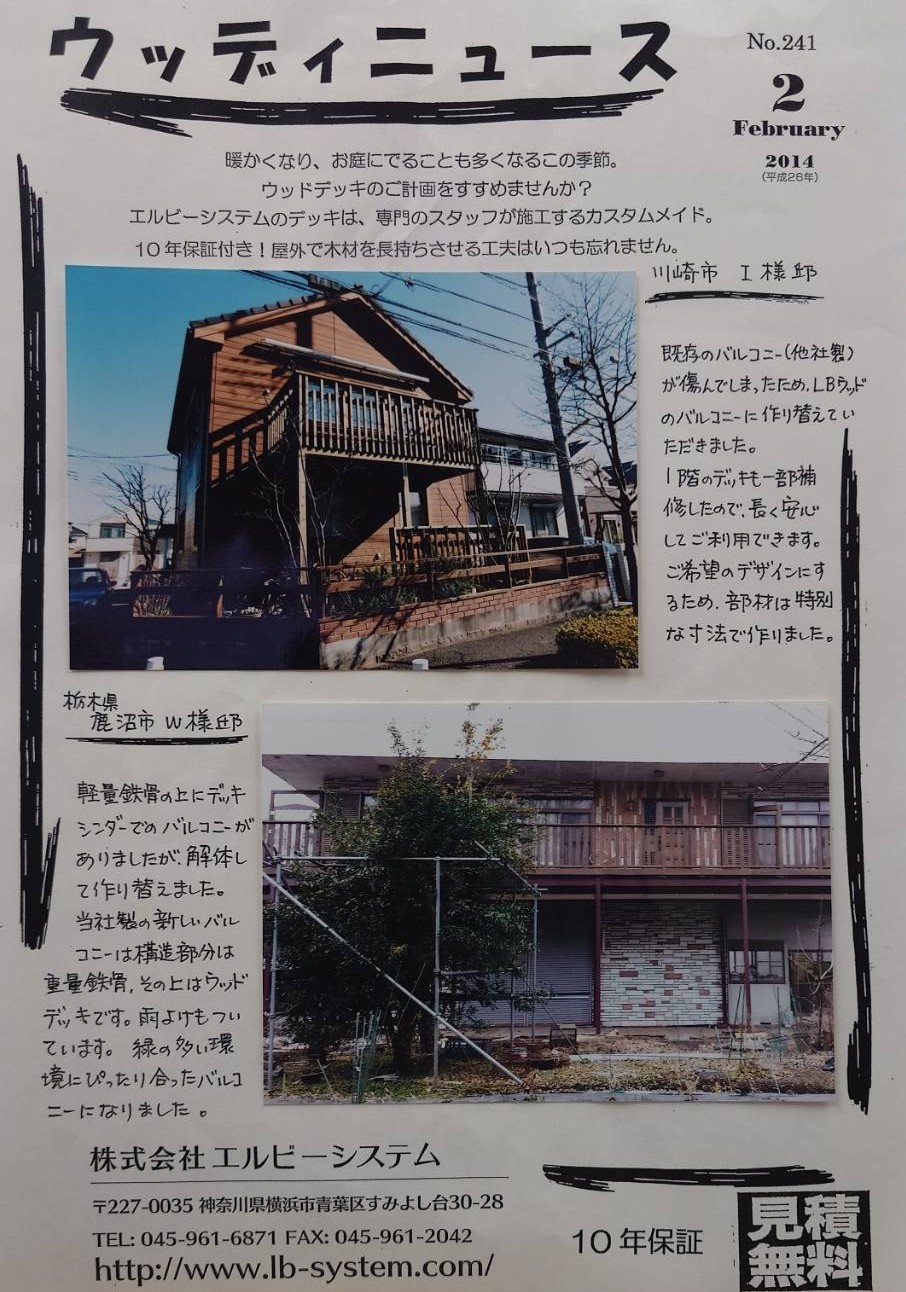 ウッディニュース
No.241
2
February
2014
(平成26年)
暖かくなり、お庭にでることも多くなるこの季節。
ウッドデッキのご計画をすすめませんか？
エルビーシステムのデッキは、専門のスタッフが施工するカスタムメイド。
10年保証付き！屋外で木材を長持ちさせる工夫はいつも忘れません。
川崎市 I様邸
既存のバルコニー(他社製)
が傷んでしまったため、LBウッド
のバルコニーに作り替えてい
ただきました。
1階のデッキも一部補
修したので、長く安心
してご利用できます。
ご希望のデザインにす
るため、部材は特別
な寸法で作りました。
栃木県
鹿沼市 W様邸
軽量鉄骨の上にデッキ
シンダーでのバルコニーが
ありましたが、解体し
て作り替えました。
当社製の新しいバル
コニーは構造部分は
重量鉄骨、その上はウッド
デッキです。雨よけもつい
ています。緑の多い環
境にぴったり合ったバルコ
ニーになりました。
株式会社エルビーシステム
〒227-0035 神奈川県横浜市青葉区すみよし台30-28
TEL: 045-961-6871 FAX: 045-961-2042
http://www.lb-system.com/
10年保証
見積
無料